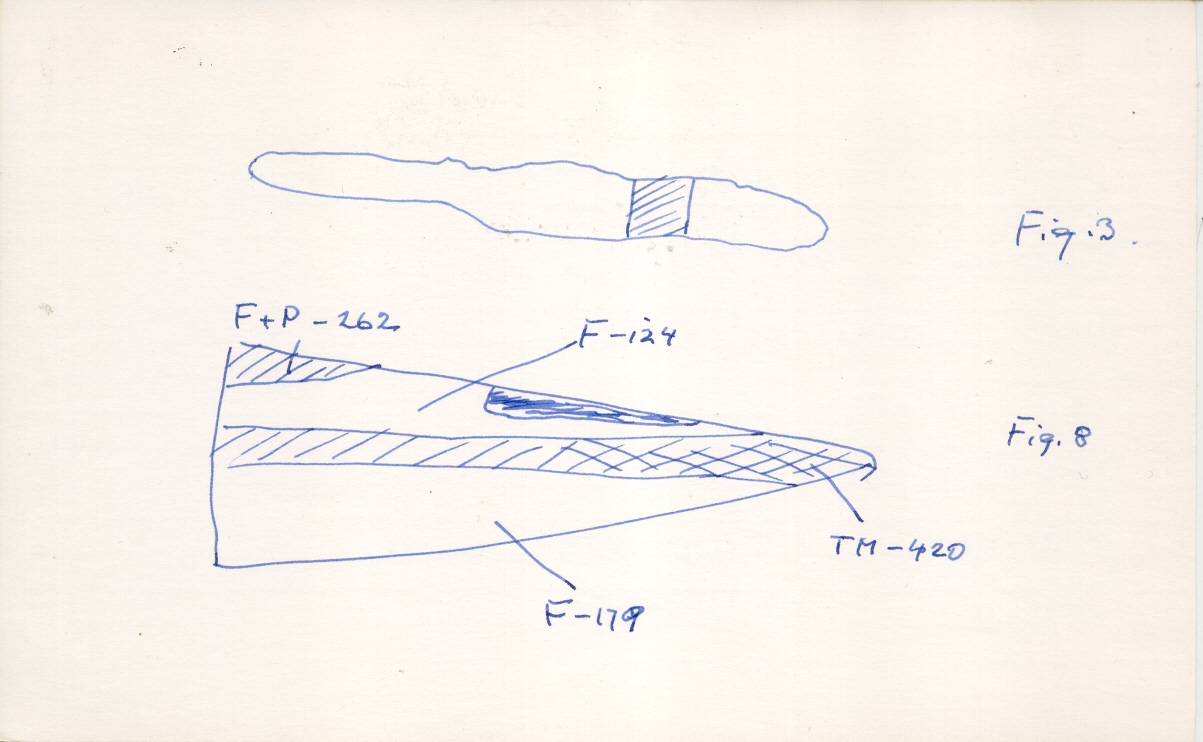 Fig. 3.
F+P-262
F-124
Fig. 8
TM-420
F-179